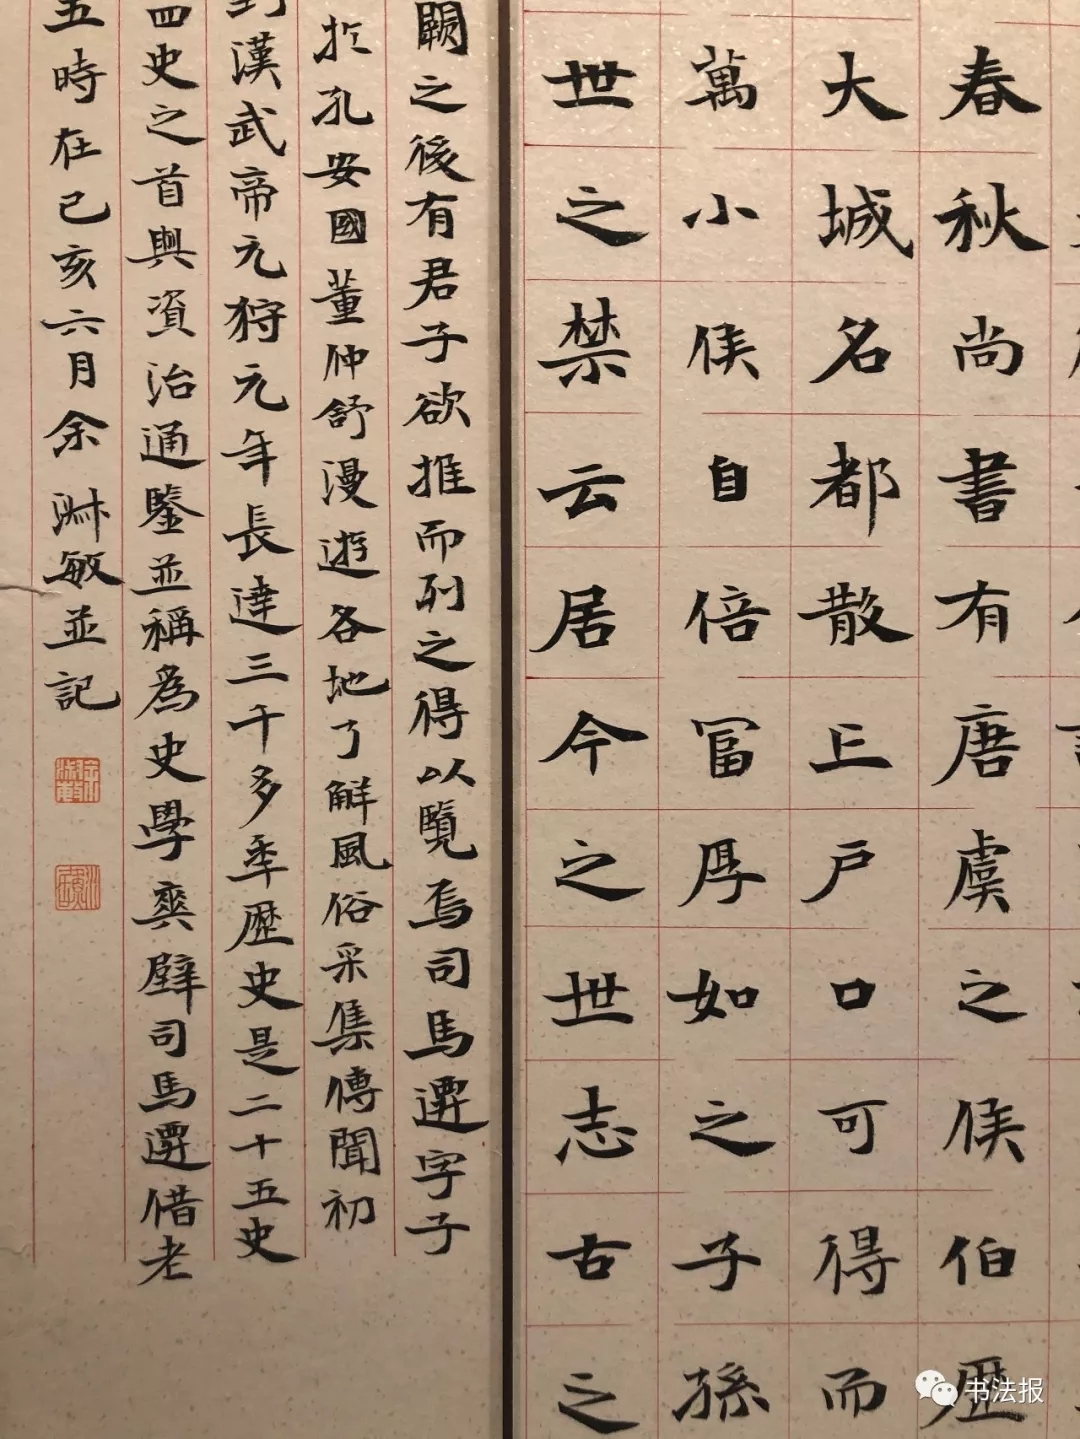 春秋尚書有唐虞之侯伯歷
大城名都散亡戶口可得而
萬小侯自倍富厚如之子孫
世之禁云居今之世志古之
闕之後有君子欲推而列之得以覽焉司馬遷字子
於孔安國董仲舒漫遊各地了解風俗采集傳聞初
到漢武帝元狩元年長達三千多年歷史是二十五史
四史之首與資治通鑒並稱為史學雙璧司馬遷借老
五時在己亥六月余淑敏並記
书法报